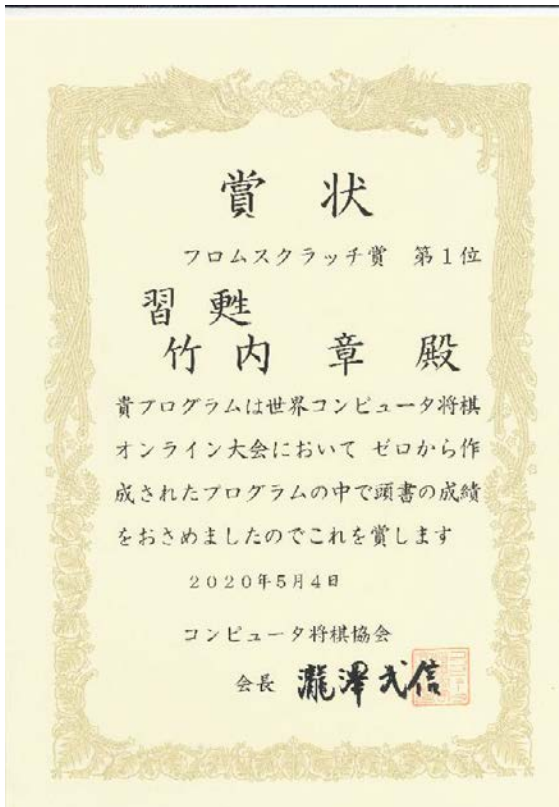 賞状
フロムスクラッチ賞 第1位
習甦
竹内 章 殿
貴プログラムは世界コンピュータ将棋
オンライン大会において ゼロから作
成されたプログラムの中で頭書の成績
をおさめましたのでこれを賞します
2020年5月4日
コンピュータ将棋協会
会長 瀧澤武信